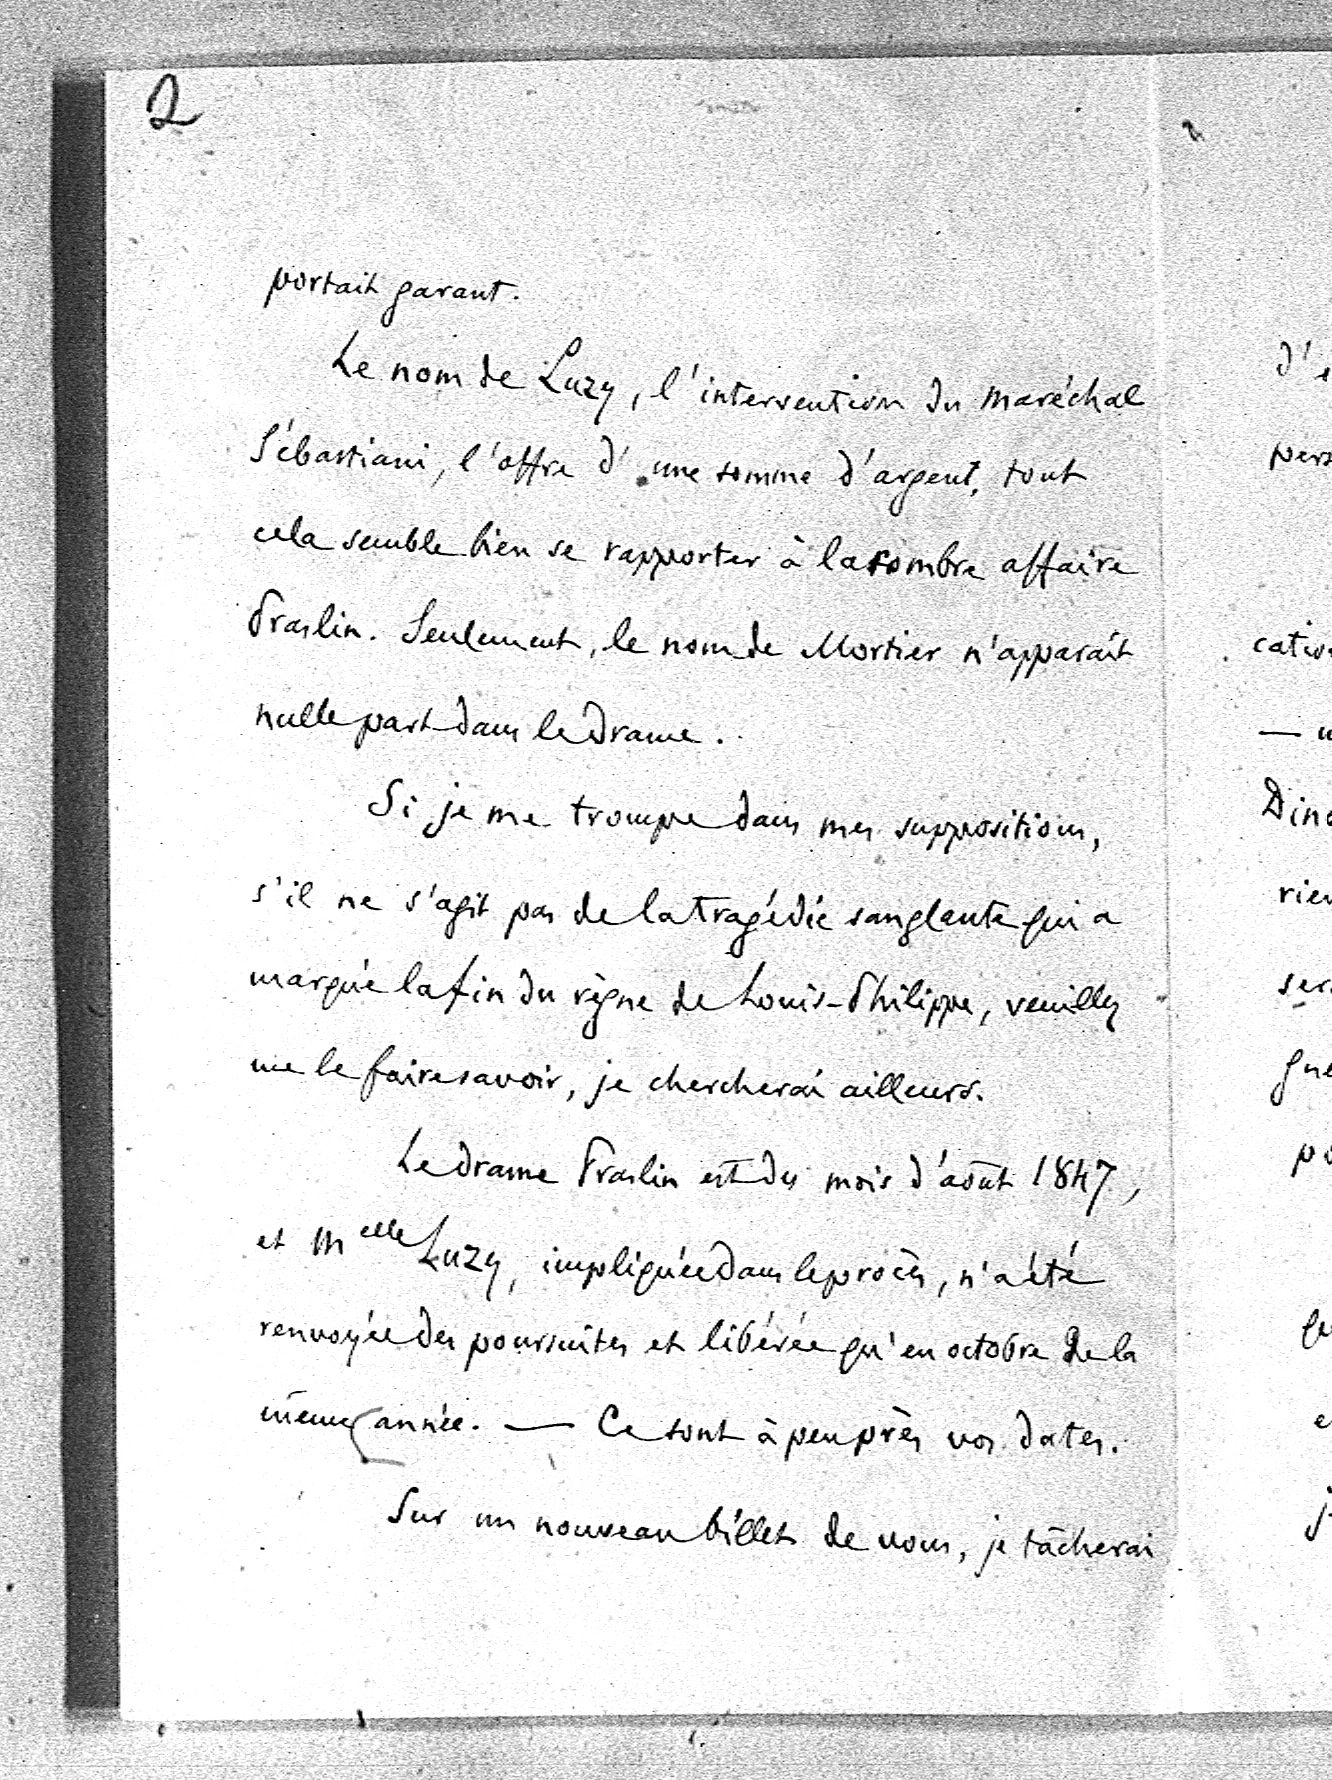 2
portait garant.
Le nom de Luzy, l'intervention du maréchal
Sébastiani, l'offre d'une somme d'argent, tout
cela semble bien se rapporter à la sombre affaire
Praslin. Seulement, le nom de Mortier n'apparaît
nulle part dans le drame.
Si je me trompe dans mes suppositions,
s'il ne s'agit pas de la tragédie sanglante qui a
marqué la fin du règne de Louis-Philippe, veuillez
me le faire savoir, je chercherai ailleurs.
Le drame Praslin est du mois d'août 1847,
et Melle Luzy, impliquée dans le procès, n'a été
renvoyée des poursuites et libérée qu'en octobre de la
même année. — Ce sont à peu près vos dates.
Sur un nouveau billet de vous, je tâcherai